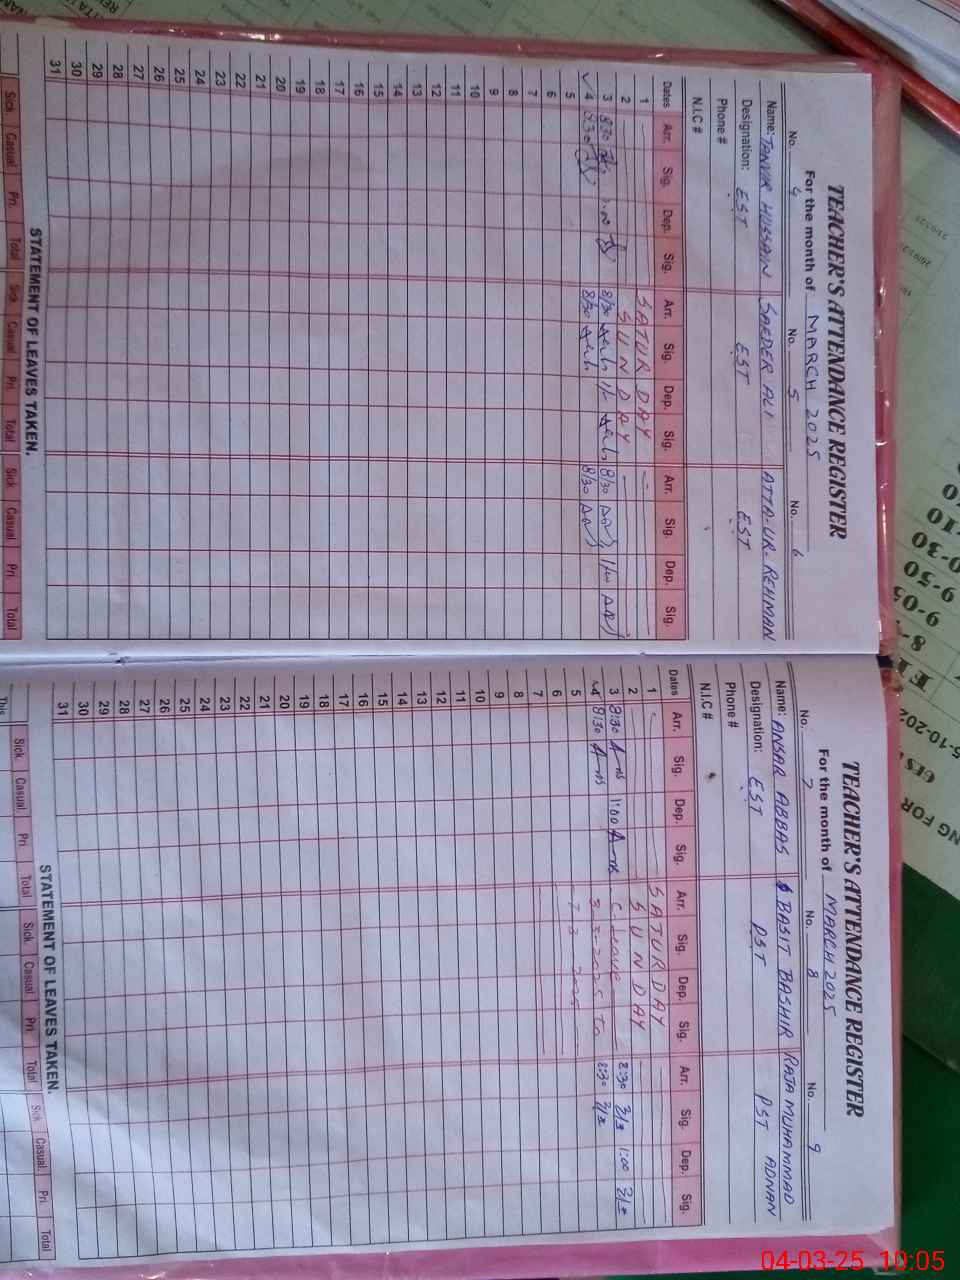 TEACHER'S ATTENDANCE REGISTER
For the month of MARCH 2025
No. 4 No. 5 No. 6
Name: TANVIR HUSSAIN SAEDER ALI ATTA-UR-REHMAN
Designation: EST EST EST
Phone #
N.I.C #
Dates Arr. Sig. Dep. Sig. Arr. Sig. Dep. Sig. Arr. Sig. Dep. Sig.
1 SATURDAY
2 SUNDAY
3 8:30 1:00 8/30 1/- 8/30 1/00
4 8:30 8/30 8/30
5
6
7
8
9
10
11
12
13
14
15
16
17
18
19
20
21
22
23
24
25
26
27
28
29
30
31
STATEMENT OF LEAVES TAKEN.
Sick Casual Pri. Total Sick Casual Pri. Total Sick Casual Pri. Total
TEACHER'S ATTENDANCE REGISTER
For the month of MARCH 2025
No. 7 No. 8 No. 9
Name: ANSAR ABBAS BASIT BASHIR RAJA MUHAMMAD
ADNAN
Designation: EST PST PST
Phone #
N.I.C #
Dates Arr. Sig. Dep. Sig. Arr. Sig. Dep. Sig. Arr. Sig. Dep. Sig.
1 SATURDAY
2 SUNDAY
3 8:30 1:00 C-Leave 8:30 1:00
4 8:30 3-3-2025 To 8:30
5 7-3-2025
6
7
8
9
10
11
12
13
14
15
16
17
18
19
20
21
22
23
24
25
26
27
28
29
30
31
STATEMENT OF LEAVES TAKEN.
Sick Casual Pri Total Sick Casual Pri. Total Sick Casual Pri Total
This
NG FOR
9-05
9-50
04-03-25 10:05